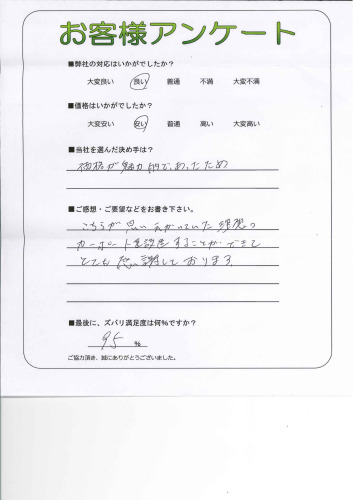 お客様アンケート
■弊社の対応はいかがでしたか？
大変良い 良い 普通 不満 大変不満
■価格はいかがでしたか？
大変安い 安い 普通 高い 大変高い
■当社を選んだ決め手は？
価格が魅力的であったため
■ご感想・ご要望などをお書き下さい。
こちらが思いえがいていた理想の
カーポートを設置することができて
とても感謝しております
■最後に、ズバリ満足度は何％ですか？
95 %
ご協力頂き、誠にありがとうございました。